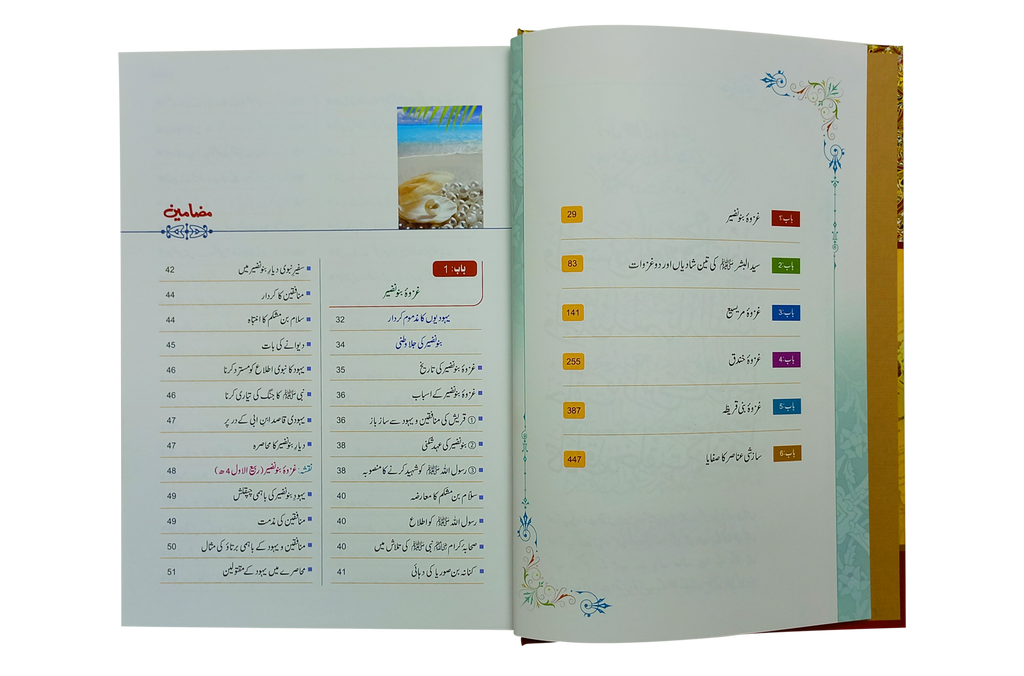 باب:1 غزوۂ بنو نضیر 29
باب:2 سید البشر ﷺ کی تین شادیاں اور دو غزوات 83
باب:3 غزوۂ مریسیع 141
باب:4 غزوۂ خندق 255
باب:5 غزوۂ بنی قریظہ 387
باب:6 سازشی عناصر کا صفایا 447
مضامین
باب: 1
غزوۂ بنو نضیر
یہودیوں کا مذموم کردار 32
بنو نضیر کی جلا وطنی 34
غزوۂ بنو نضیر کی تاریخ 35
غزوۂ بنو نضیر کے اسباب 36
① قریش کی منافقین و یہود سے ساز باز 36
② بنو نضیر کی عہد شکنی 38
③ رسول اللہ ﷺ کو شہید کرنے کا منصوبہ 38
سلام بن مشکم کا معارضہ 40
رسول اللہ ﷺ کو اطلاع 40
صحابۂ کرام نبی ﷺ کی تلاش میں 40
کنانہ بن صوریا کی دہائی 41
سفیرِ نبوی دیارِ بنو نضیر میں 42
منافقین کا کردار 44
سلام بن مشکم کا انتباہ 44
دیوانے کی بات 45
یہود کا نبوی اطلاع کو مسترد کرنا 46
نبی ﷺ کا جنگ کی تیاری کرنا 46
یہودی قاصد ابن ابی کے در پر 47
دیارِ بنو نضیر کا محاصرہ 47
نقشہ: غزوۂ بنو نضیر (ربیع الاول 4ھ) 48
یہود بنو نضیر کی باہمی چپقلش 49
منافقین کی مذمت 49
منافقین و یہود کے باہمی برتاؤ کی مثال 50
محاصرے میں یہود کے مقتولین 51